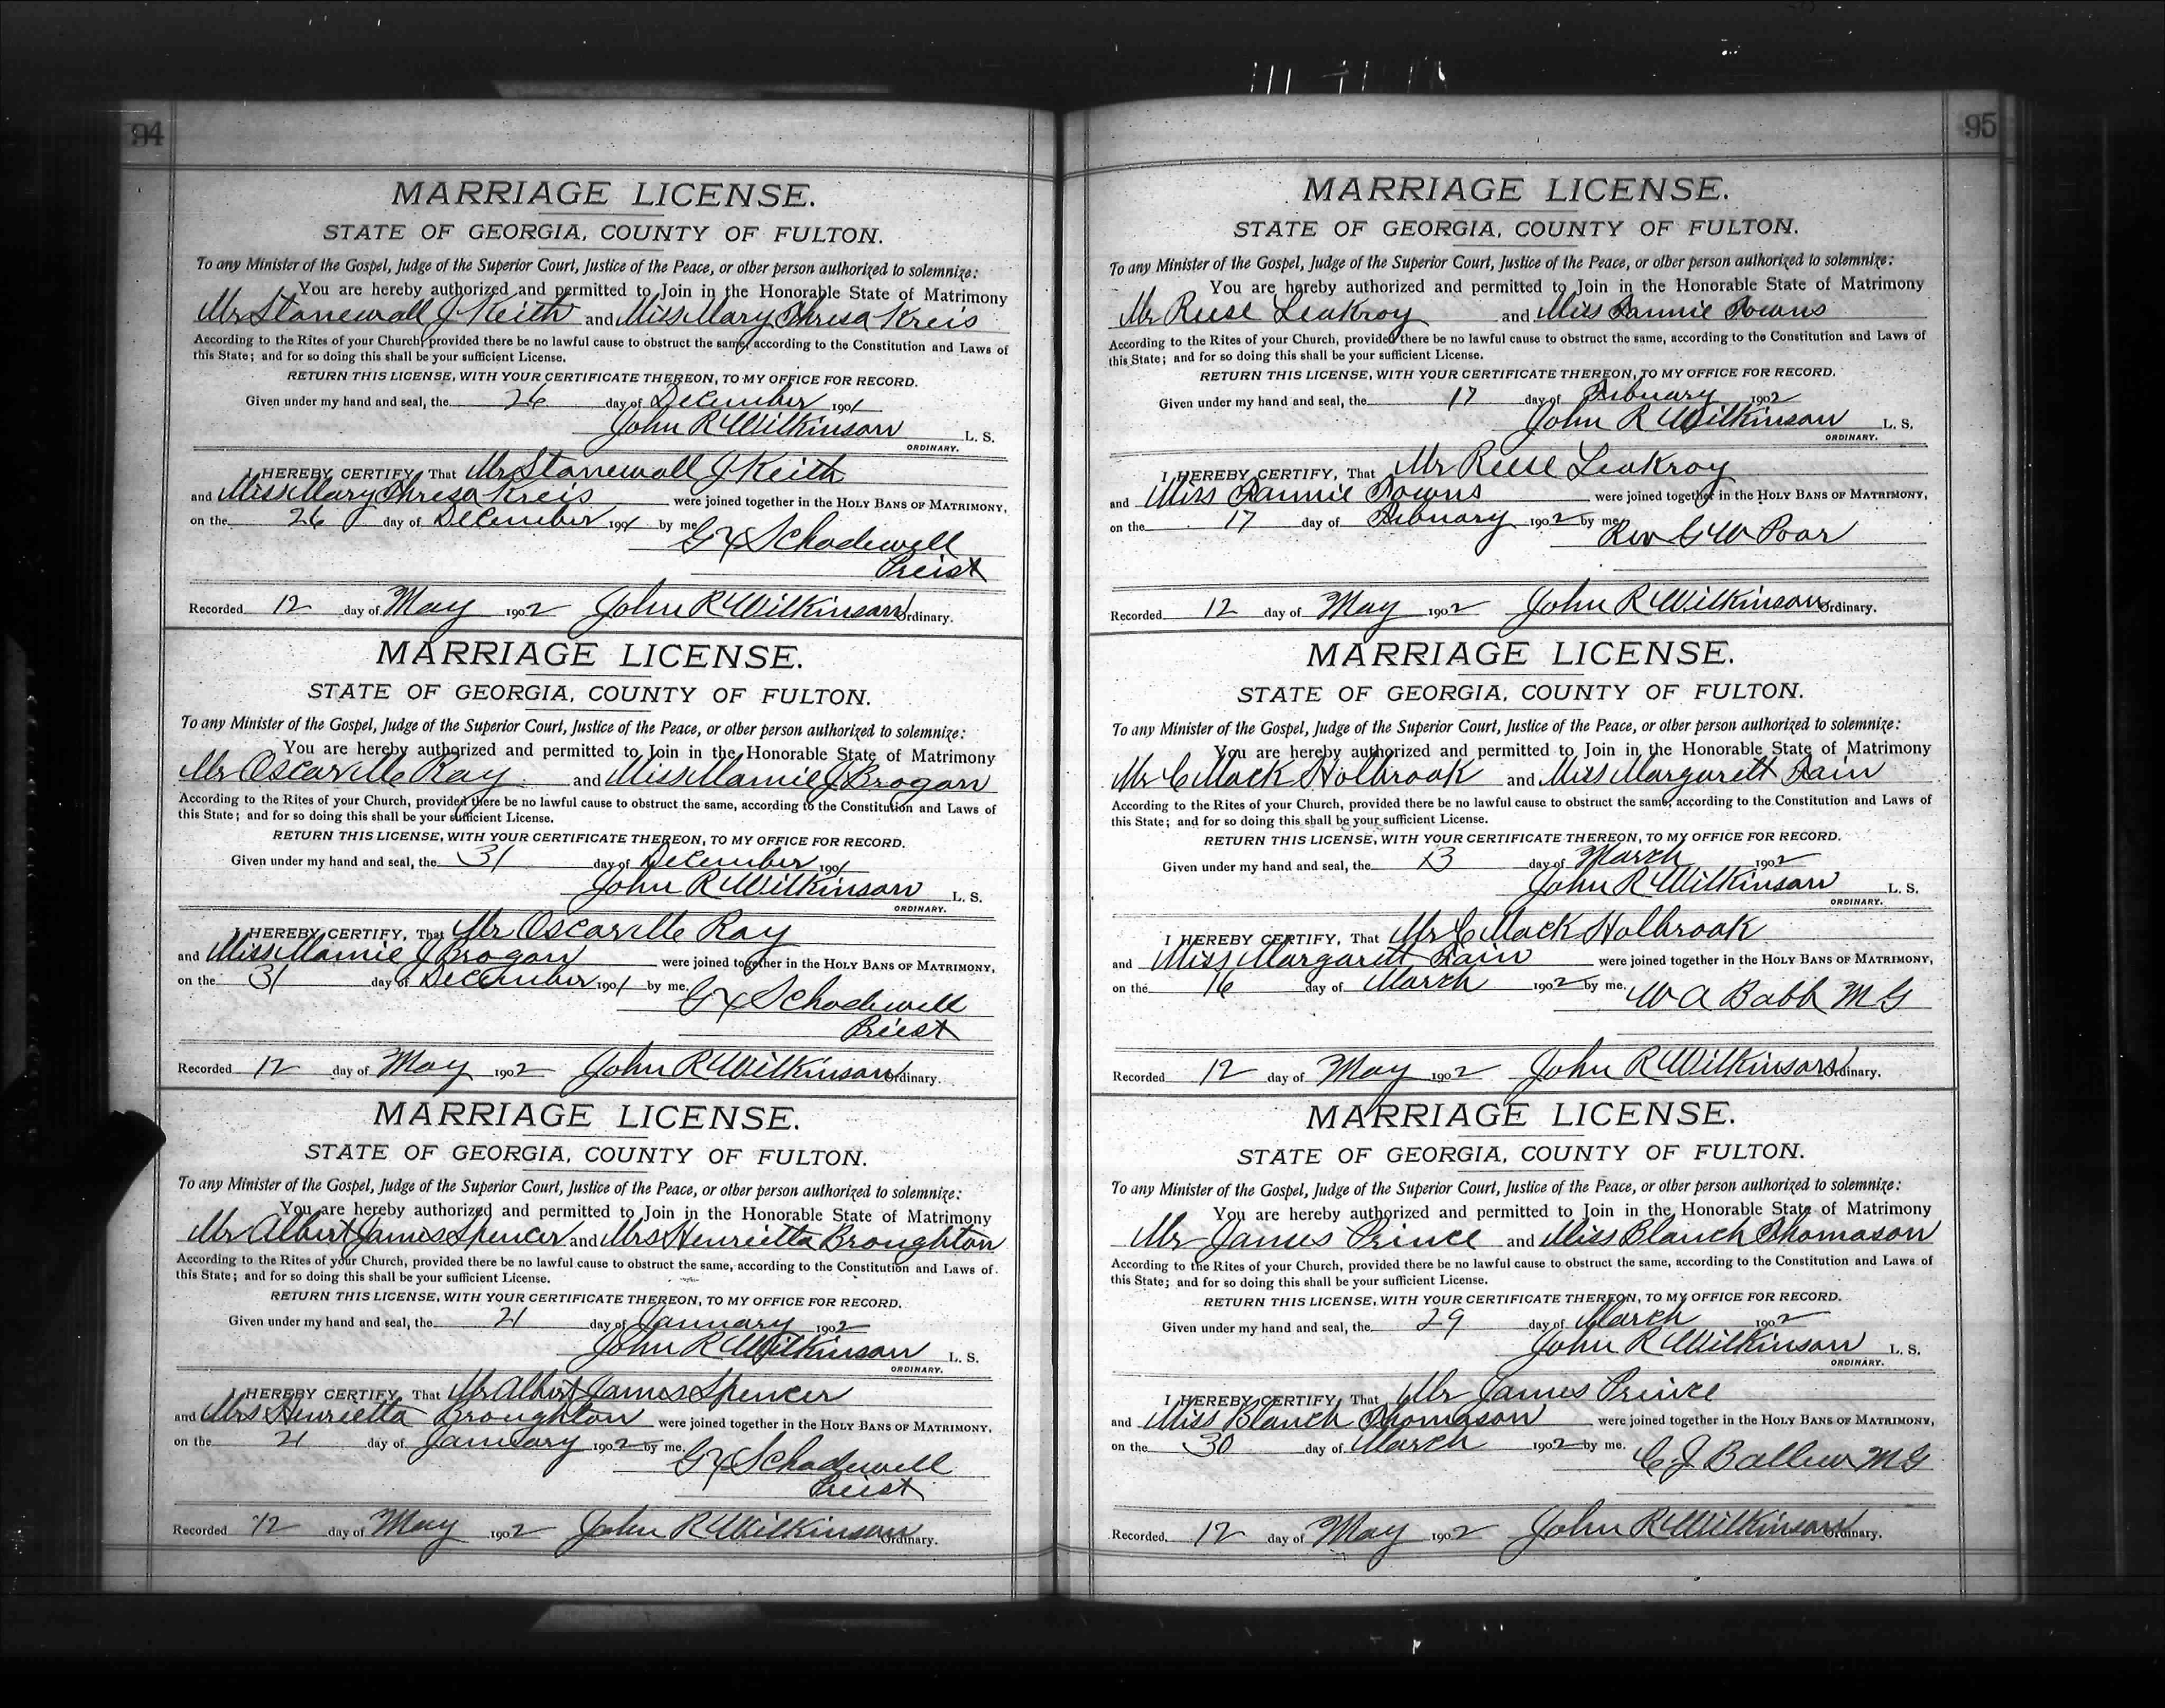 94
MARRIAGE LICENSE.
STATE OF GEORGIA, COUNTY OF FULTON.
To any Minister of the Gospel, Judge of the Superior Court, Justice of the Peace, or other person authorized to solemnize:
You are hereby authorized and permitted to Join in the Honorable State of Matrimony
Mr Stonewall J Keith and Miss Mary Thresa Kreis
According to the Rites of your Church, provided there be no lawful cause to obstruct the same, according to the Constitution and Laws of
this State; and for so doing this shall be your sufficient License.
RETURN THIS LICENSE, WITH YOUR CERTIFICATE THEREON, TO MY OFFICE FOR RECORD.
Given under my hand and seal, the 26 day of December 1901
John R Wilkinson L. S.
ORDINARY.
I HEREBY CERTIFY, That Mr Stonewall J Keith
and Miss Mary Thresa Kreis were joined together in the HOLY BANS OF MATRIMONY,
on the 26 day of December 1901 by me
G X Schadewell
Preist
Recorded 12 day of May 1902 John R Wilkinson Ordinary.
MARRIAGE LICENSE.
STATE OF GEORGIA, COUNTY OF FULTON.
To any Minister of the Gospel, Judge of the Superior Court, Justice of the Peace, or other person authorized to solemnize:
You are hereby authorized and permitted to Join in the Honorable State of Matrimony
Mr Oscarville Ray and Miss Mamie J Brogan
According to the Rites of your Church, provided there be no lawful cause to obstruct the same, according to the Constitution and Laws of
this State; and for so doing this shall be your sufficient License.
RETURN THIS LICENSE, WITH YOUR CERTIFICATE THEREON, TO MY OFFICE FOR RECORD.
Given under my hand and seal, the 31 day of December 1901
John R Wilkinson L. S.
ORDINARY.
I HEREBY CERTIFY, That Mr Oscarville Ray
and Miss Mamie J Brogan were joined together in the HOLY BANS OF MATRIMONY,
on the 31 day of December 1901 by me.
G X Schadewell
Priest
Recorded 12 day of May 1902 John R Wilkinson Ordinary.
MARRIAGE LICENSE.
STATE OF GEORGIA, COUNTY OF FULTON.
To any Minister of the Gospel, Judge of the Superior Court, Justice of the Peace, or other person authorized to solemnize:
You are hereby authorized and permitted to Join in the Honorable State of Matrimony
Mr Albert James Spencer and Mrs Henrietta Broughton
According to the Rites of your Church, provided there be no lawful cause to obstruct the same, according to the Constitution and Laws of
this State; and for so doing this shall be your sufficient License.
RETURN THIS LICENSE, WITH YOUR CERTIFICATE THEREON, TO MY OFFICE FOR RECORD.
Given under my hand and seal, the 21 day of January 1902
John R Wilkinson L. S.
ORDINARY.
I HEREBY CERTIFY, That Mr Albert James Spencer
and Mrs Henrietta Broughton were joined together in the HOLY BANS OF MATRIMONY,
on the 21 day of January 1902 by me.
G X Schadewell
Priest
Recorded 12 day of May 1902 John R Wilkinson Ordinary.
95
MARRIAGE LICENSE.
STATE OF GEORGIA, COUNTY OF FULTON.
To any Minister of the Gospel, Judge of the Superior Court, Justice of the Peace, or other person authorized to solemnize:
You are hereby authorized and permitted to Join in the Honorable State of Matrimony
Mr Reese Leakroy and Miss Fannie Towns
According to the Rites of your Church, provided there be no lawful cause to obstruct the same, according to the Constitution and Laws of
this State; and for so doing this shall be your sufficient License.
RETURN THIS LICENSE, WITH YOUR CERTIFICATE THEREON, TO MY OFFICE FOR RECORD.
Given under my hand and seal, the 17 day of Febuary 1902
John R Wilkinson L. S.
ORDINARY.
I HEREBY CERTIFY, That Mr Reese Leakroy
and Miss Fannie Towns were joined together in the HOLY BANS OF MATRIMONY,
on the 17 day of Febuary 1902 by me
Rev G W Poar
Recorded 12 day of May 1902 John R Wilkinson Ordinary.
MARRIAGE LICENSE.
STATE OF GEORGIA, COUNTY OF FULTON.
To any Minister of the Gospel, Judge of the Superior Court, Justice of the Peace, or other person authorized to solemnize:
You are hereby authorized and permitted to Join in the Honorable State of Matrimony
Mr C Mack Holbrook and Miss Margarett Fain
According to the Rites of your Church, provided there be no lawful cause to obstruct the same, according to the Constitution and Laws of
this State; and for so doing this shall be your sufficient License.
RETURN THIS LICENSE, WITH YOUR CERTIFICATE THEREON, TO MY OFFICE FOR RECORD.
Given under my hand and seal, the 13 day of March 1902
John R Wilkinson L. S.
ORDINARY.
I HEREBY CERTIFY, That Mr C Mack Holbrook
and Miss Margarett Fain were joined together in the HOLY BANS OF MATRIMONY,
on the 16 day of March 1902 by me.
W A Babb M G
Recorded 12 day of May 1902 John R Wilkinson Ordinary.
MARRIAGE LICENSE.
STATE OF GEORGIA, COUNTY OF FULTON.
To any Minister of the Gospel, Judge of the Superior Court, Justice of the Peace, or other person authorized to solemnize:
You are hereby authorized and permitted to Join in the Honorable State of Matrimony
Mr James Prince and Miss Blanch Thomason
According to the Rites of your Church, provided there be no lawful cause to obstruct the same, according to the Constitution and Laws of
this State; and for so doing this shall be your sufficient License.
RETURN THIS LICENSE, WITH YOUR CERTIFICATE THEREON, TO MY OFFICE FOR RECORD.
Given under my hand and seal, the 29 day of March 1902
John R Wilkinson L. S.
ORDINARY.
I HEREBY CERTIFY, That Mr James Prince
and Miss Blanch Thomason were joined together in the HOLY BANS OF MATRIMONY,
on the 30 day of March 1902 by me.
C. J Ballew M G
Recorded. 12 day of May 1902 John R Wilkinson Ordinary.